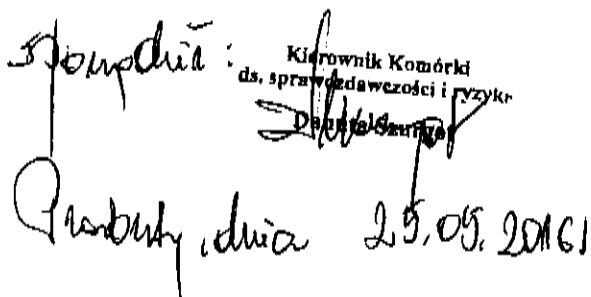 Sporządził:
Kierownik Komórki
ds. sprawozdawczości i ryzyk
Danuta
Prabuty, dnia 25.05.2016r